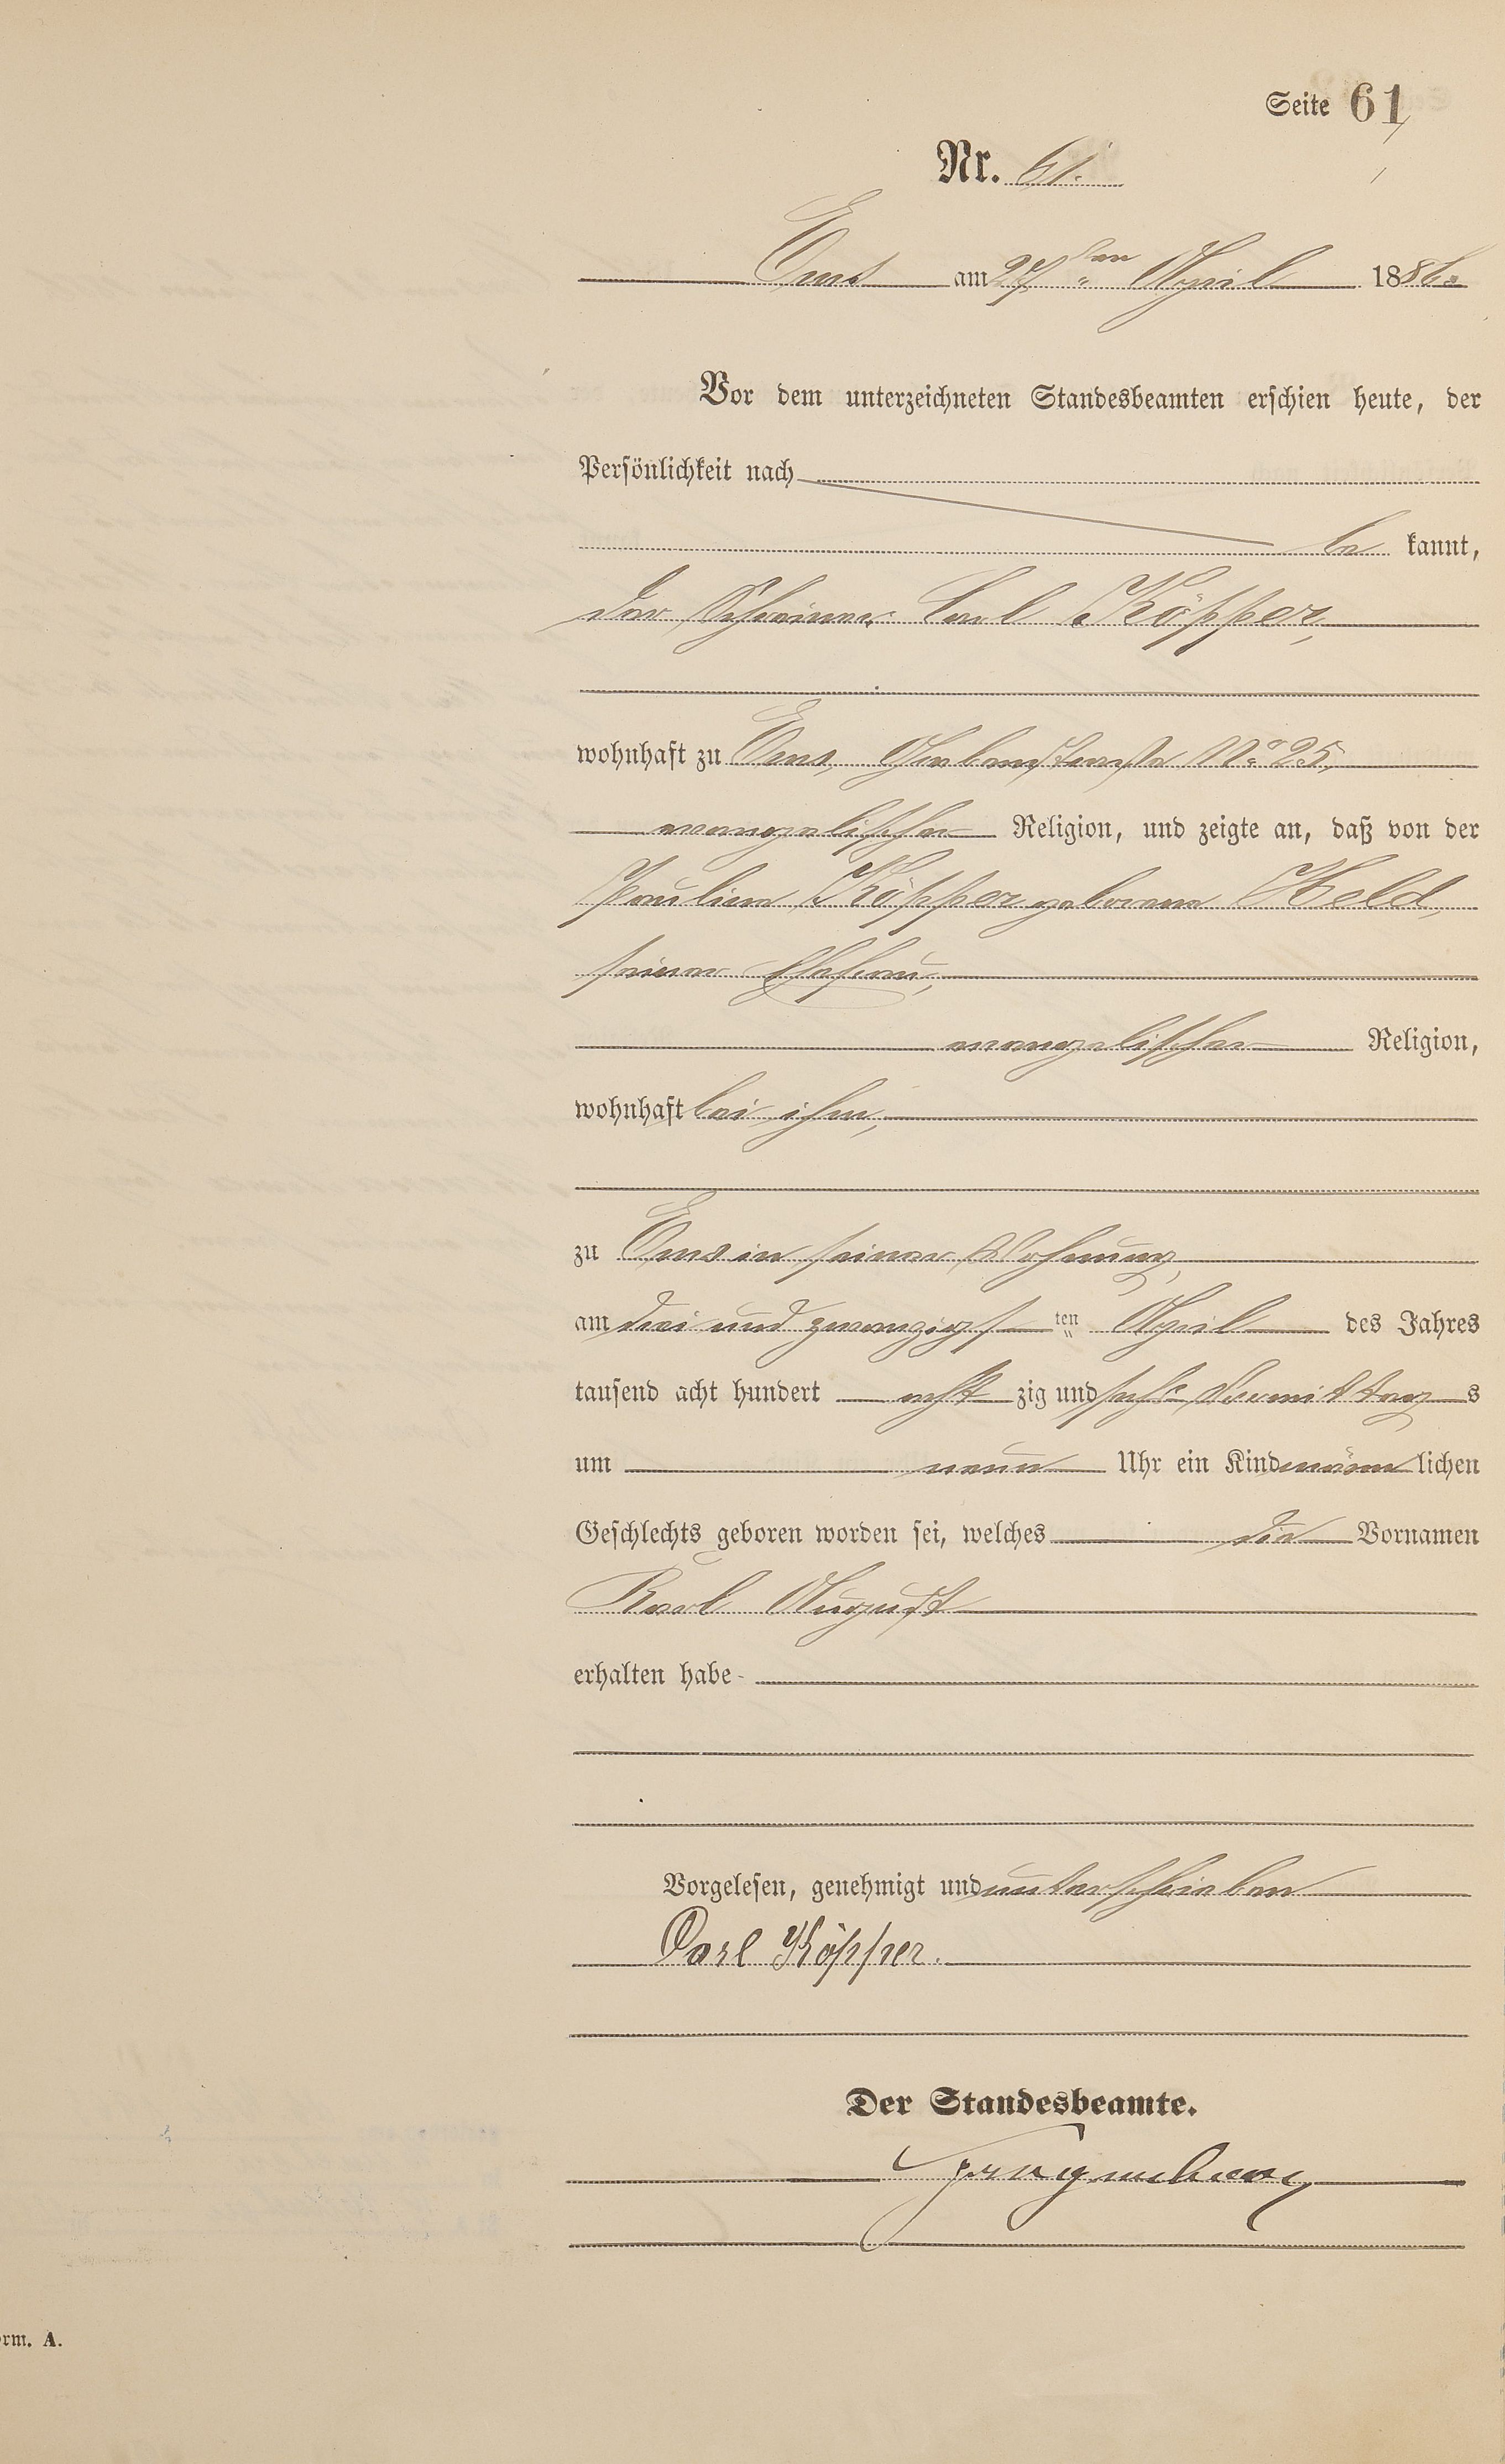 Seite 61
Nr. 61.
Ems am 27ten April 1886.
Vor dem unterzeichneten Standesbeamten erschien heute, der
Persönlichkeit nach
be kannt,
der Schreiner Carl Köpper,
wohnhaft zu Ems, No 25,
evangelischer Religion, und zeigte an, daß von der
Pauline Köpper geborene Held,
seiner Ehefrau,
evangelischer Religion,
wohnhaft bei ihm,
zu Ems in seiner Wohnung,
am drei und zwanzigs ten April des Jahres
tausend acht hundert acht zig und sechs Vormittag s
um neun Uhr ein Kind männ lichen
Geschlechts geboren worden sei, welches die Vornamen
Karl August
erhalten habe
Vorgelesen, genehmigt und unterschrieben
Carl Köpper.
Der Standesbeamte.
orm. A.